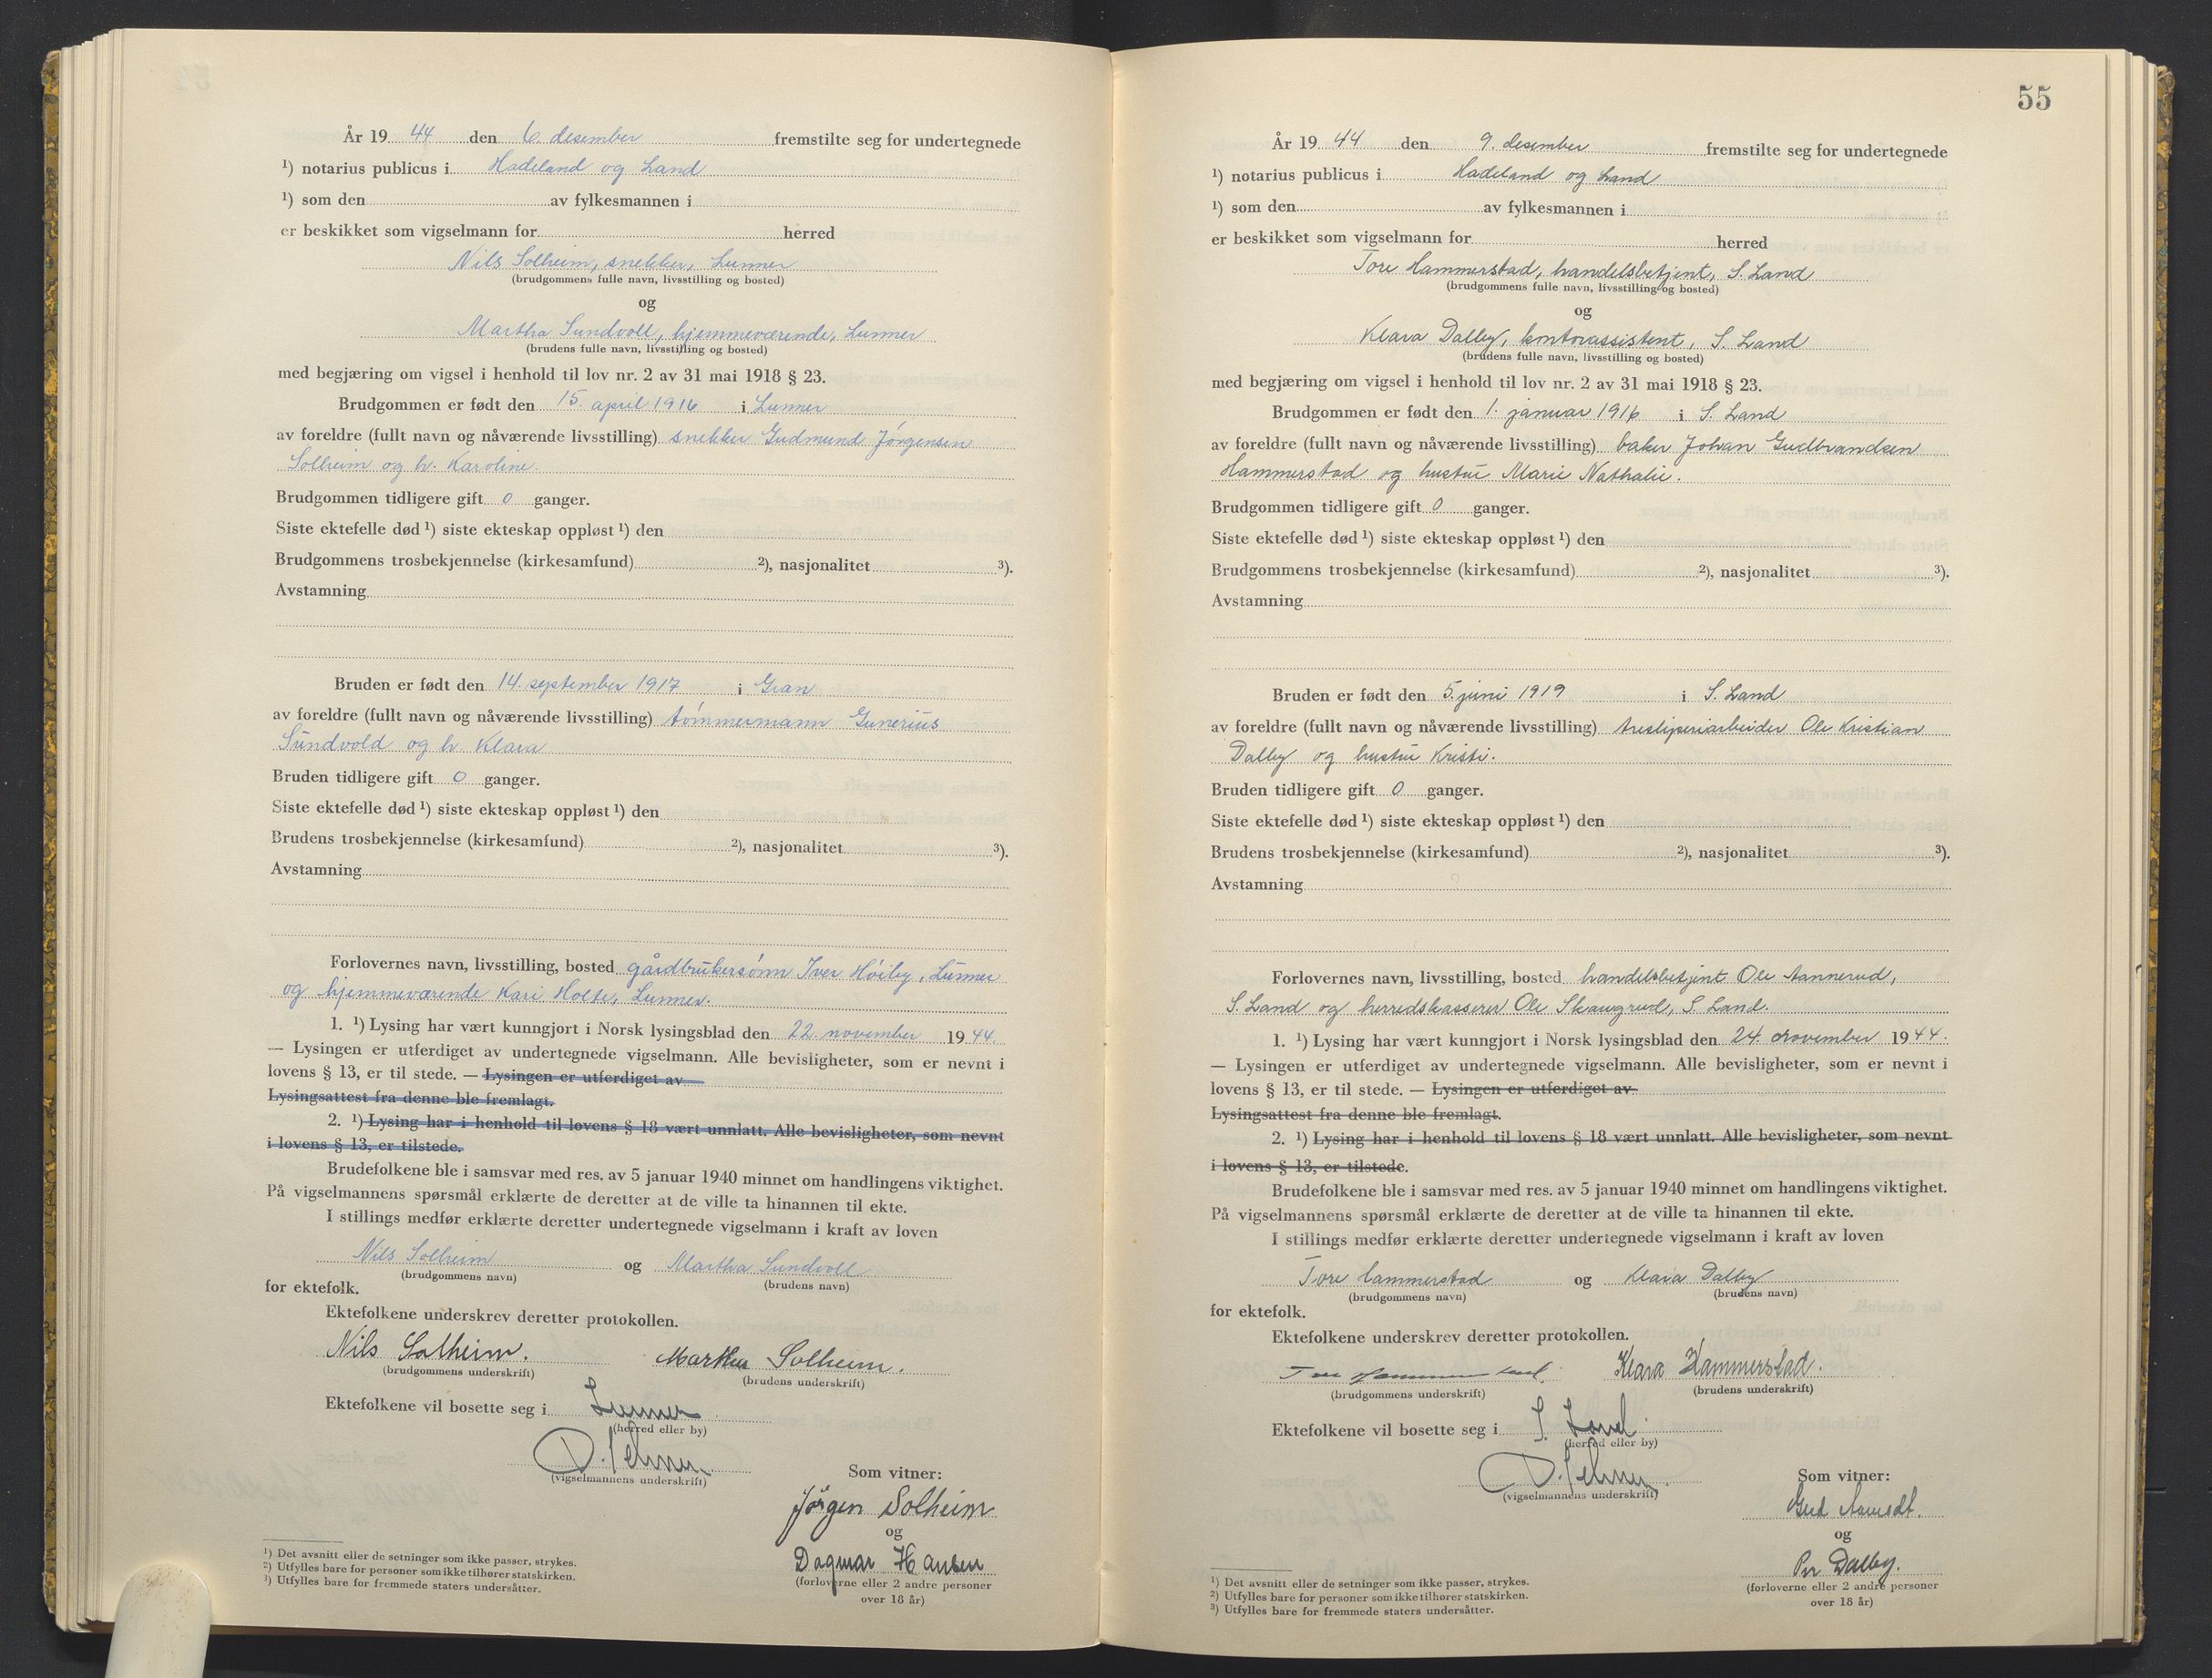 År 19 44 den 6. desember fremstilte seg for undertegnede
¹) notarius publicus i Hadeland og Land
¹) som den av fylkesmannen i
er beskikket som vigselmann for herred
Nils Solheim, snekker, Lunner
(brudgommens fulle navn, livsstilling og bosted)
og
Martha Sundvoll, hjemmeværende, Lunner
(brudens fulle navn, livsstilling og bosted)
med begjæring om vigsel i henhold til lov nr. 2 av 31 mai 1918 § 23.
Brudgommen er født den 15. april 1916 i Lunner
av foreldre (fullt navn og nåværende livsstilling) snekker Gudmund Jørgensen
Solheim og h. Karoline.
Brudgommen tidligere gift 0 ganger.
Siste ektefelle død ¹) siste ekteskap oppløst ¹) den
Brudgommens trosbekjennelse (kirkesamfund) ²), nasjonalitet ³).
Avstamning
Bruden er født den 14. september 1917 i Gran
av foreldre (fullt navn og nåværende livsstilling) tømmermann Gunerius
Sundvold og h. Klara
Bruden tidligere gift 0 ganger.
Siste ektefelle død ¹) siste ekteskap oppløst ¹) den
Brudens trosbekjennelse (kirkesamfund) ²), nasjonalitet ³).
Avstamning
Forlovernes navn, livsstilling, bosted gårdbrukersønn Iver Høiby, Lunner
og hjemmeværende Kari Holte, Lunner.
1. ¹) Lysing har vært kunngjort i Norsk lysingsblad den 22. november 19 44.
— Lysingen er utferdiget av undertegnede vigselmann. Alle bevisligheter, som er nevnt i
lovens § 13, er til stede. — Lysingen er utferdiget av
Lysingsattest fra denne ble fremlagt.
2. ¹) Lysing har i henhold til lovens § 18 vært unnlatt. Alle bevisligheter, som nevnt
i lovens § 13, er tilstede.
Brudefolkene ble i samsvar med res. av 5 januar 1940 minnet om handlingens viktighet.
På vigselmannens spørsmål erklærte de deretter at de ville ta hinannen til ekte.
I stillings medfør erklærte deretter undertegnede vigselmann i kraft av loven
Nils Solheim og Martha Sundvoll
(brudgommens navn) (brudens navn)
for ektefolk.
Ektefolkene underskrev deretter protokollen.
Nils Solheim. Martha Solheim.
(brudgommens underskrift) (brudens underskrift)
Ektefolkene vil bosette seg i Lunner.
(herred eller by)
(vigselmannens underskrift)
Som vitner:
Jørgen Solheim
og
Dagmar Hansen
(forloverne eller 2 andre personer
over 18 år)
¹) Det avsnitt eller de setninger som ikke passer, strykes.
²) Utfylles bare for personer som ikke tilhører statskirken.
³) Utfylles bare for fremmede staters undersåtter.
55
År 19 44 den 9. desember fremstilte seg for undertegnede
¹) notarius publicus i Hadeland og Land
¹) som den av fylkesmannen i
er beskikket som vigselmann for herred
Tore Hammerstad, handelsbetjent, S. Land
(brudgommens fulle navn, livsstilling og bosted)
og
Klara Dalby, kontorassistent, S. Land
(brudens fulle navn, livsstilling og bosted)
med begjæring om vigsel i henhold til lov nr. 2 av 31 mai 1918 § 23.
Brudgommen er født den 1. januar 1916 i S. Land
av foreldre (fullt navn og nåværende livsstilling) baker Johan Gudbrandsen
Hammerstad og hustru Marie Nathalie.
Brudgommen tidligere gift 0 ganger.
Siste ektefelle død ¹) siste ekteskap oppløst ¹) den
Brudgommens trosbekjennelse (kirkesamfund) ²), nasjonalitet ³).
Avstamning
Bruden er født den 5. juni 1919 i S. Land
av foreldre (fullt navn og nåværende livsstilling) tresliperiarbeider Ole Kristian
Dalby og hustru Kristi.
Bruden tidligere gift 0 ganger.
Siste ektefelle død ¹) siste ekteskap oppløst ¹) den
Brudens trosbekjennelse (kirkesamfund) ²), nasjonalitet ³).
Avstamning
Forlovernes navn, livsstilling, bosted handelsbetjent Ole Aannerud,
S. Land og herredskasserer Ole Skaugrud, S. Land.
1. ¹) Lysing har vært kunngjort i Norsk lysingsblad den 24. november 19 44.
— Lysingen er utferdiget av undertegnede vigselmann. Alle bevisligheter, som er nevnt i
lovens § 13, er til stede. — Lysingen er utferdiget av
Lysingsattest fra denne ble fremlagt.
2. ¹) Lysing har i henhold til lovens § 18 vært unnlatt. Alle bevisligheter, som nevnt
i lovens § 13, er tilstede.
Brudefolkene ble i samsvar med res. av 5 januar 1940 minnet om handlingens viktighet.
På vigselmannens spørsmål erklærte de deretter at de ville ta hinannen til ekte.
I stillings medfør erklærte deretter undertegnede vigselmann i kraft av loven
Tore Hammerstad og Klara Dalby
(brudgommens navn) (brudens navn)
for ektefolk.
Ektefolkene underskrev deretter protokollen.
Tore Hammerstad. Klara Hammerstad.
(brudgommens underskrift) (brudens underskrift)
Ektefolkene vil bosette seg i S. Land.
(herred eller by)
(vigselmannens underskrift)
Som vitner:
og
Per Dalby.
(forloverne eller 2 andre personer
over 18 år)
¹) Det avsnitt eller de setninger som ikke passer, strykes.
²) Utfylles bare for personer som ikke tilhører statskirken.
³) Utfylles bare for fremmede staters undersåtter.